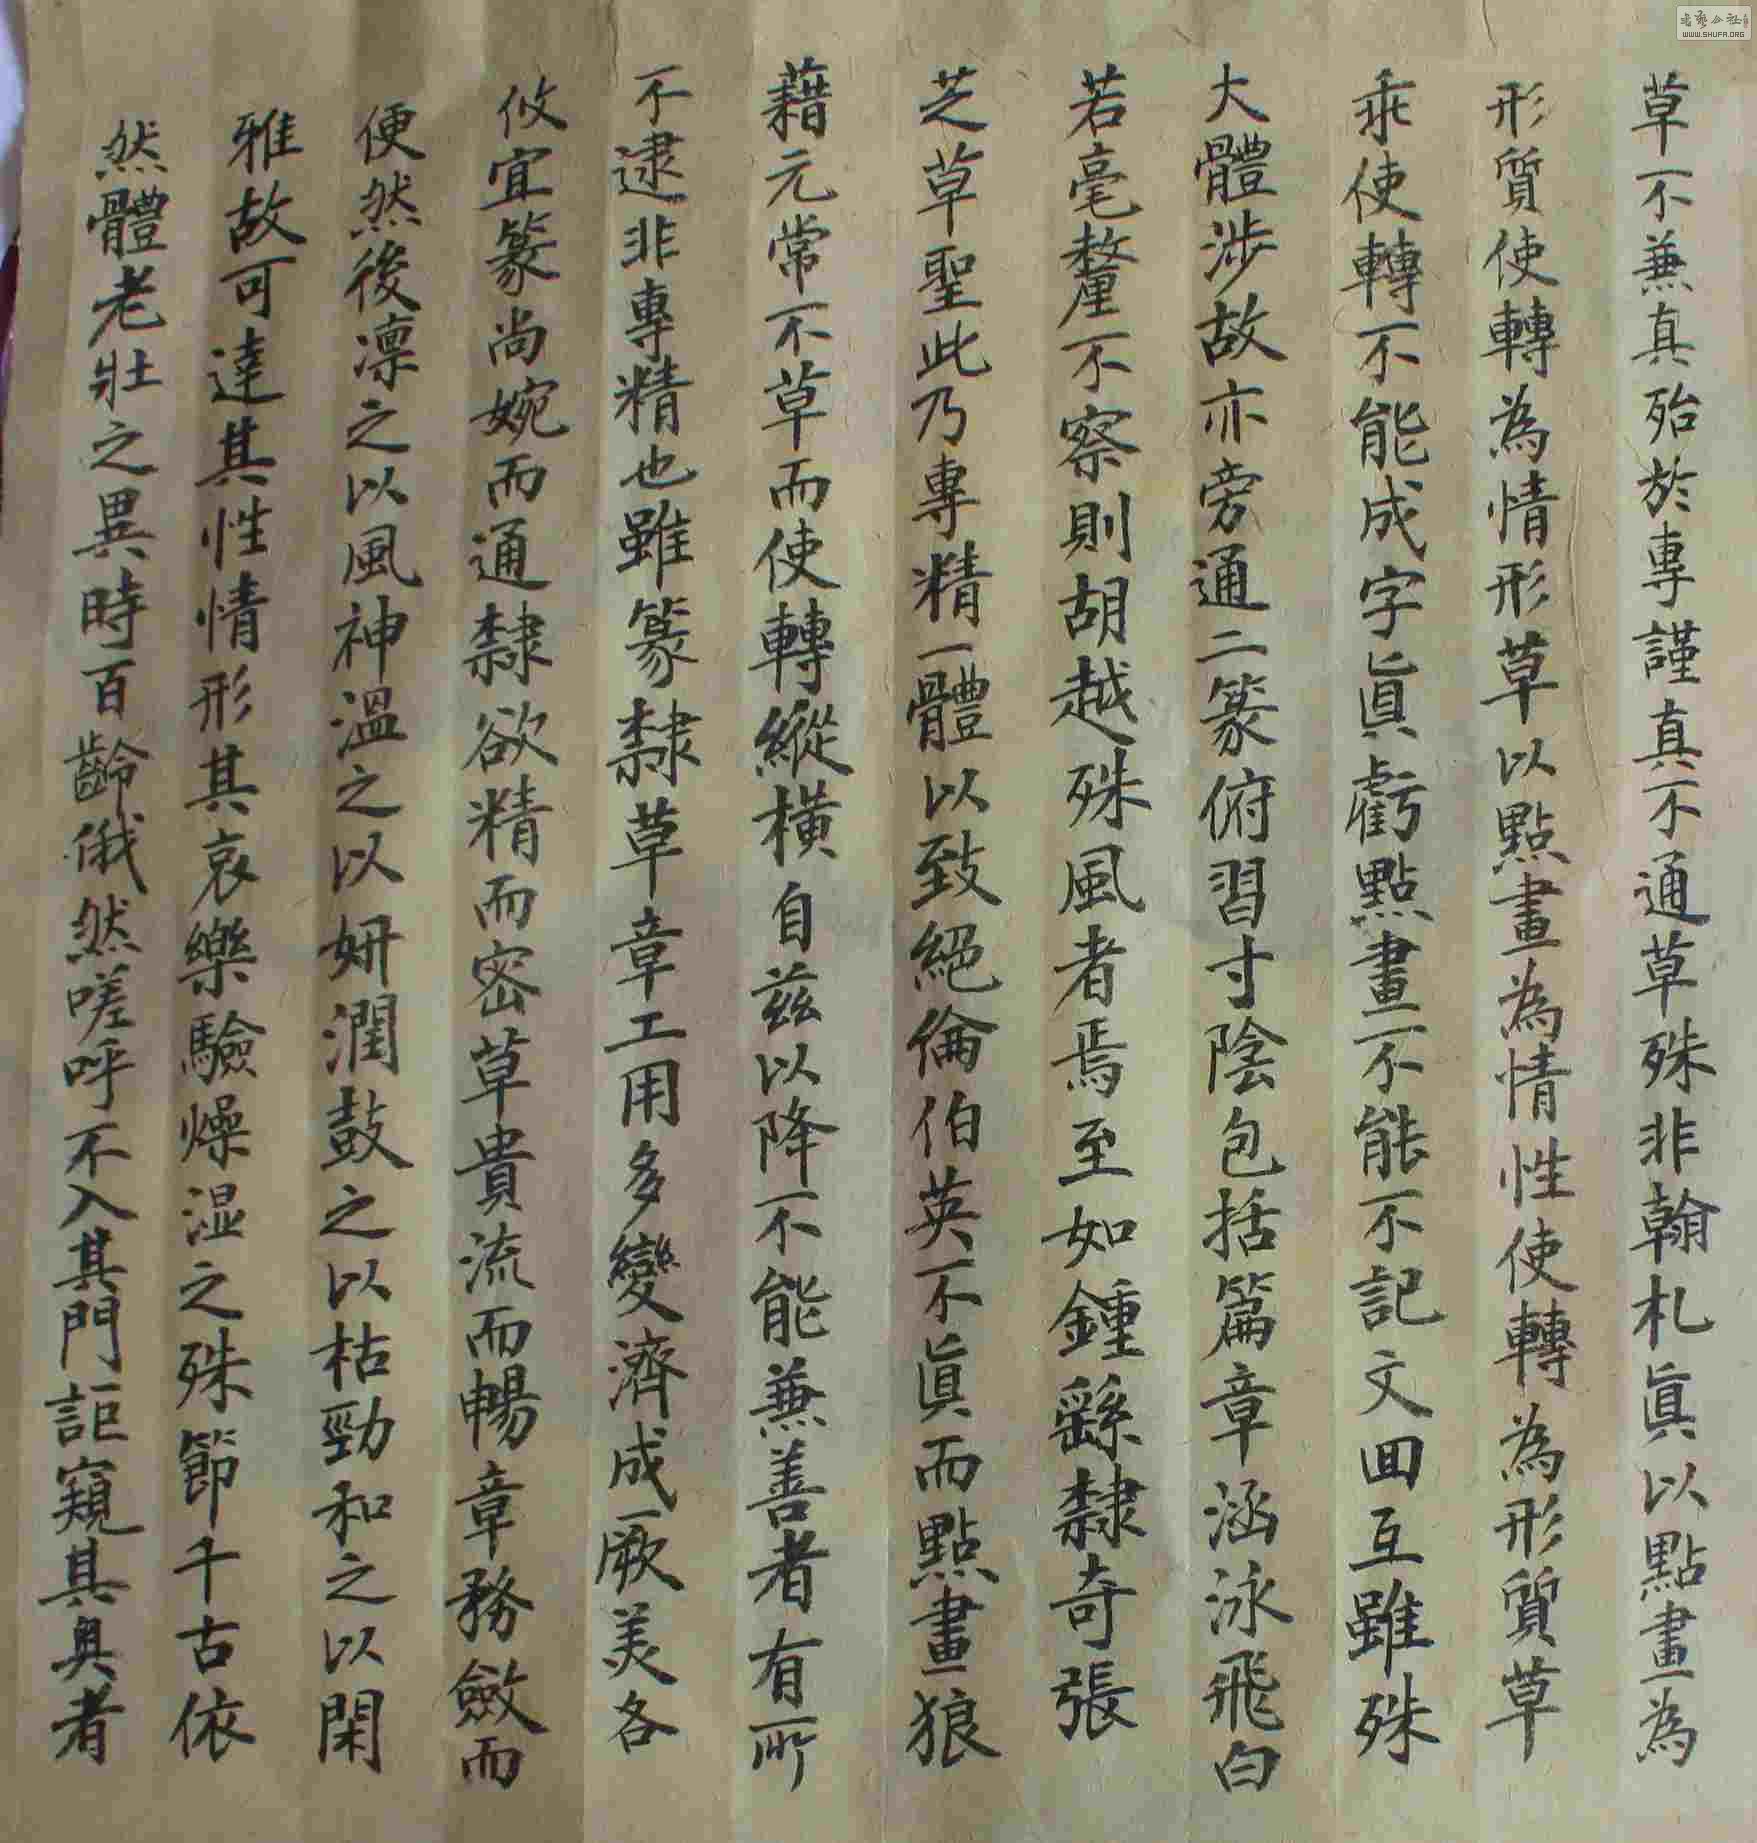 草不兼真殆於專謹真不通草殊非翰札眞以點畫為
形質使轉為情形草以點畫為情性使轉為形質草
乖使轉不能成字眞虧點畫不能不記文回互雖殊
大體涉故亦旁通二篆俯習寸陰包括篇章涵泳飛白
若毫釐不察則胡越殊風者焉至如鍾繇隸奇張
芝草聖此乃專精一體以致絕倫伯英不眞而點畫狼
藉元常不草而使轉縱橫自茲以降不能兼善者有所
不逮非專精也雖篆隸草章工用多變濟成厥美各
攸宜篆尚婉而通隸欲精而密草貴流而暢章務斂而
便然後凛之以風神溫之以妍潤鼓之以枯勁和之以閑
雅故可達其性情形其哀樂驗燥湿之殊節千古依
然體老壯之異時百齡俄然嗟呼不入其門詎窺其奥者
书艺公社
WWW.SHUFA.ORG